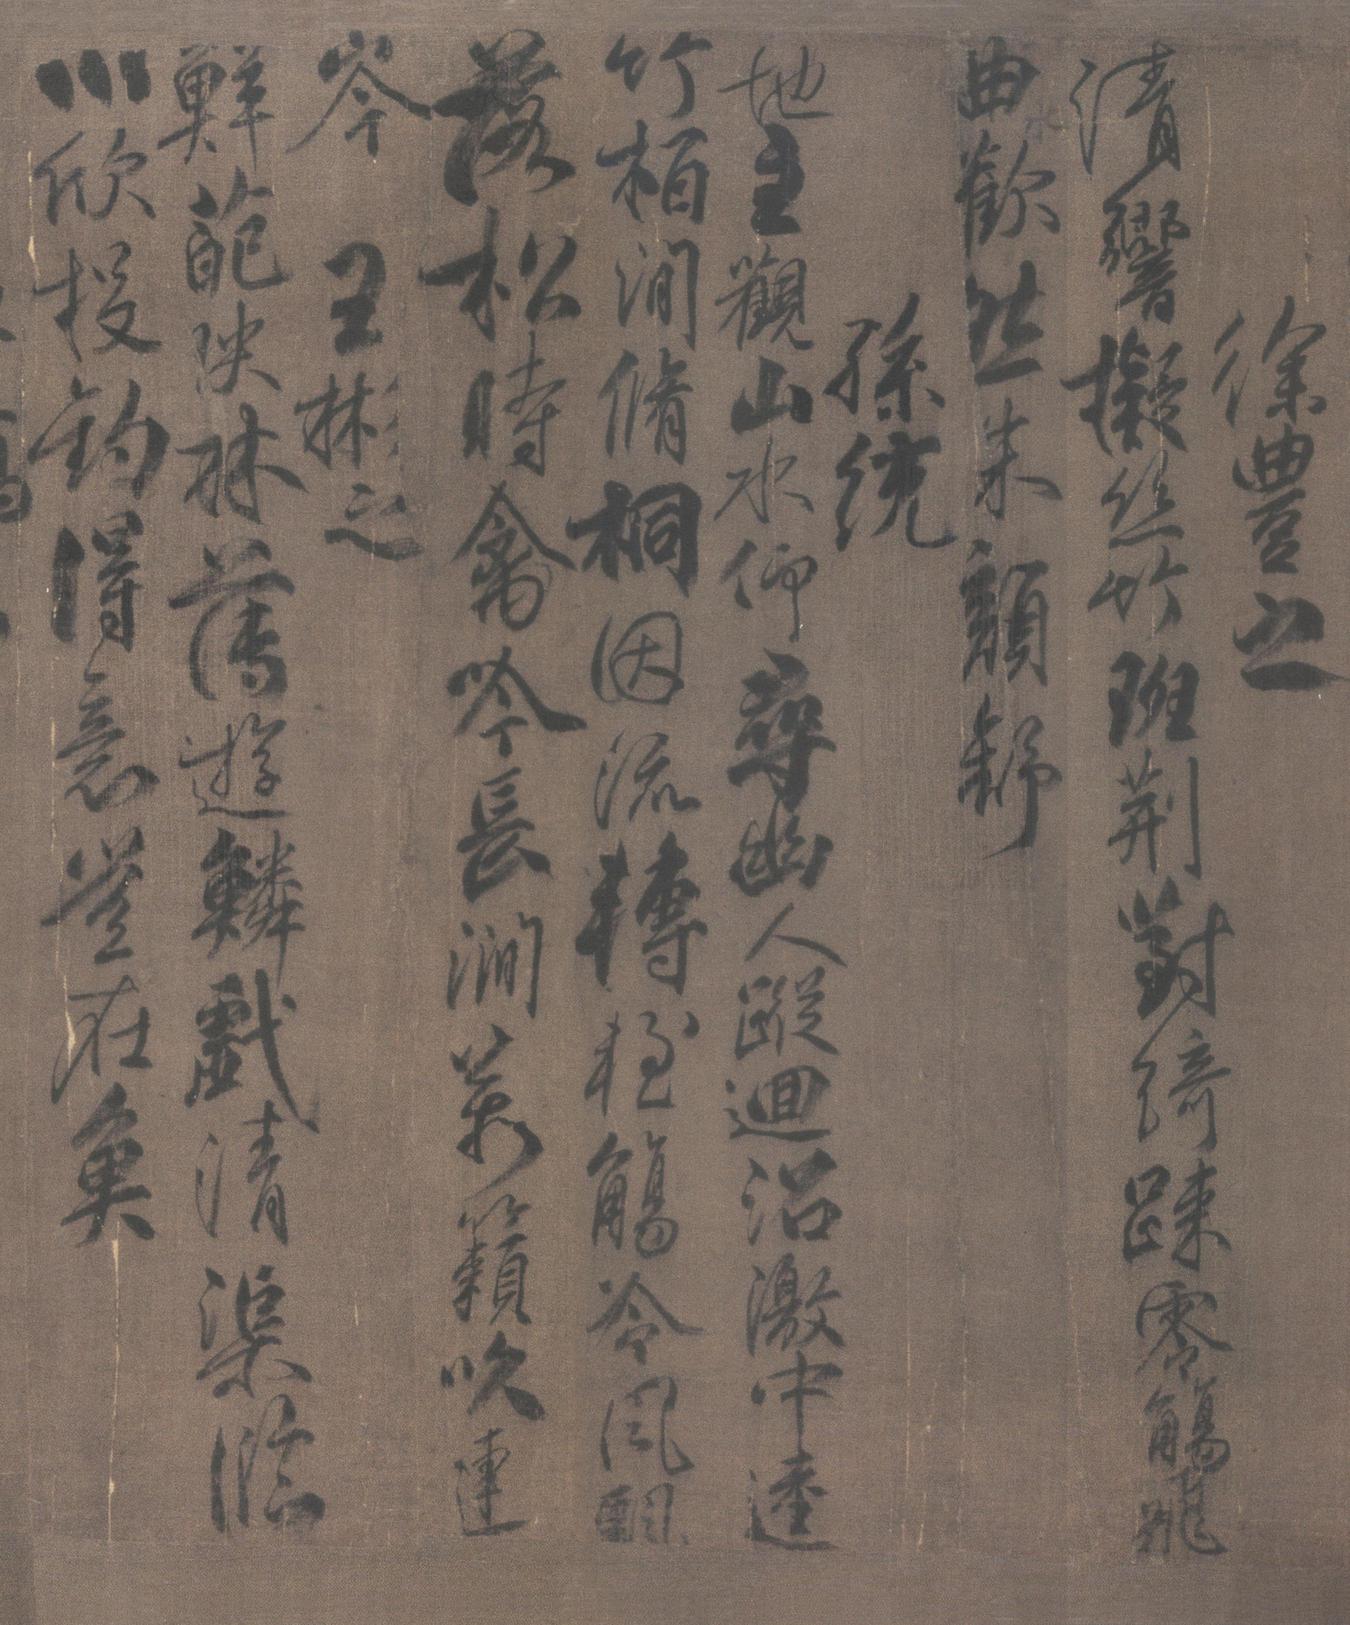 徐豐之
清響擬絲竹班荆對綺踈零觴飛
曲歡然朱顏舒
孫統
地主觀山水仰尋幽人蹤迴沼激中逵
竹柏澗脩桐因流轉輕觴冷風飄
落松時禽吟長澗萬籟吹連
岑 王彬之
鮮葩映林薄遊鱗戲清渠臨
川欣投釣得意豈在魚